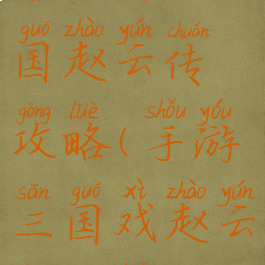 guó zhào yún chuán
国赵云传
gōng lüè shǒu yóu
攻略(手游
sān guó xì zhào yún
三国戏赵云